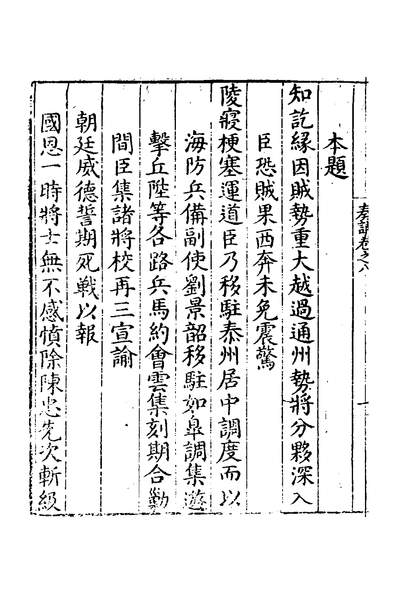 奏議卷之八
一
本題
知訖緣因賊勢重大越過通州勢將分夥深入
臣恐賊果西奔未免震驚
陵寢梗塞運道臣乃移駐泰州居中調度而以
海防兵備副使劉景韶移駐如臯調集遊
擊丘陞等各路兵馬約會雲集刻期合勦
間臣集諸將校再三宣諭
朝廷威德誓期死戰以報
國恩一時將士無不感憤除陳忠先次斬級